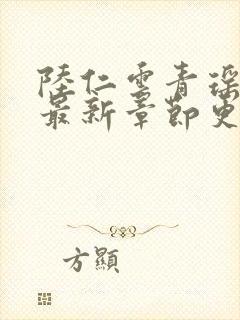 陸仁雲青瑤
最新章節更
方顯